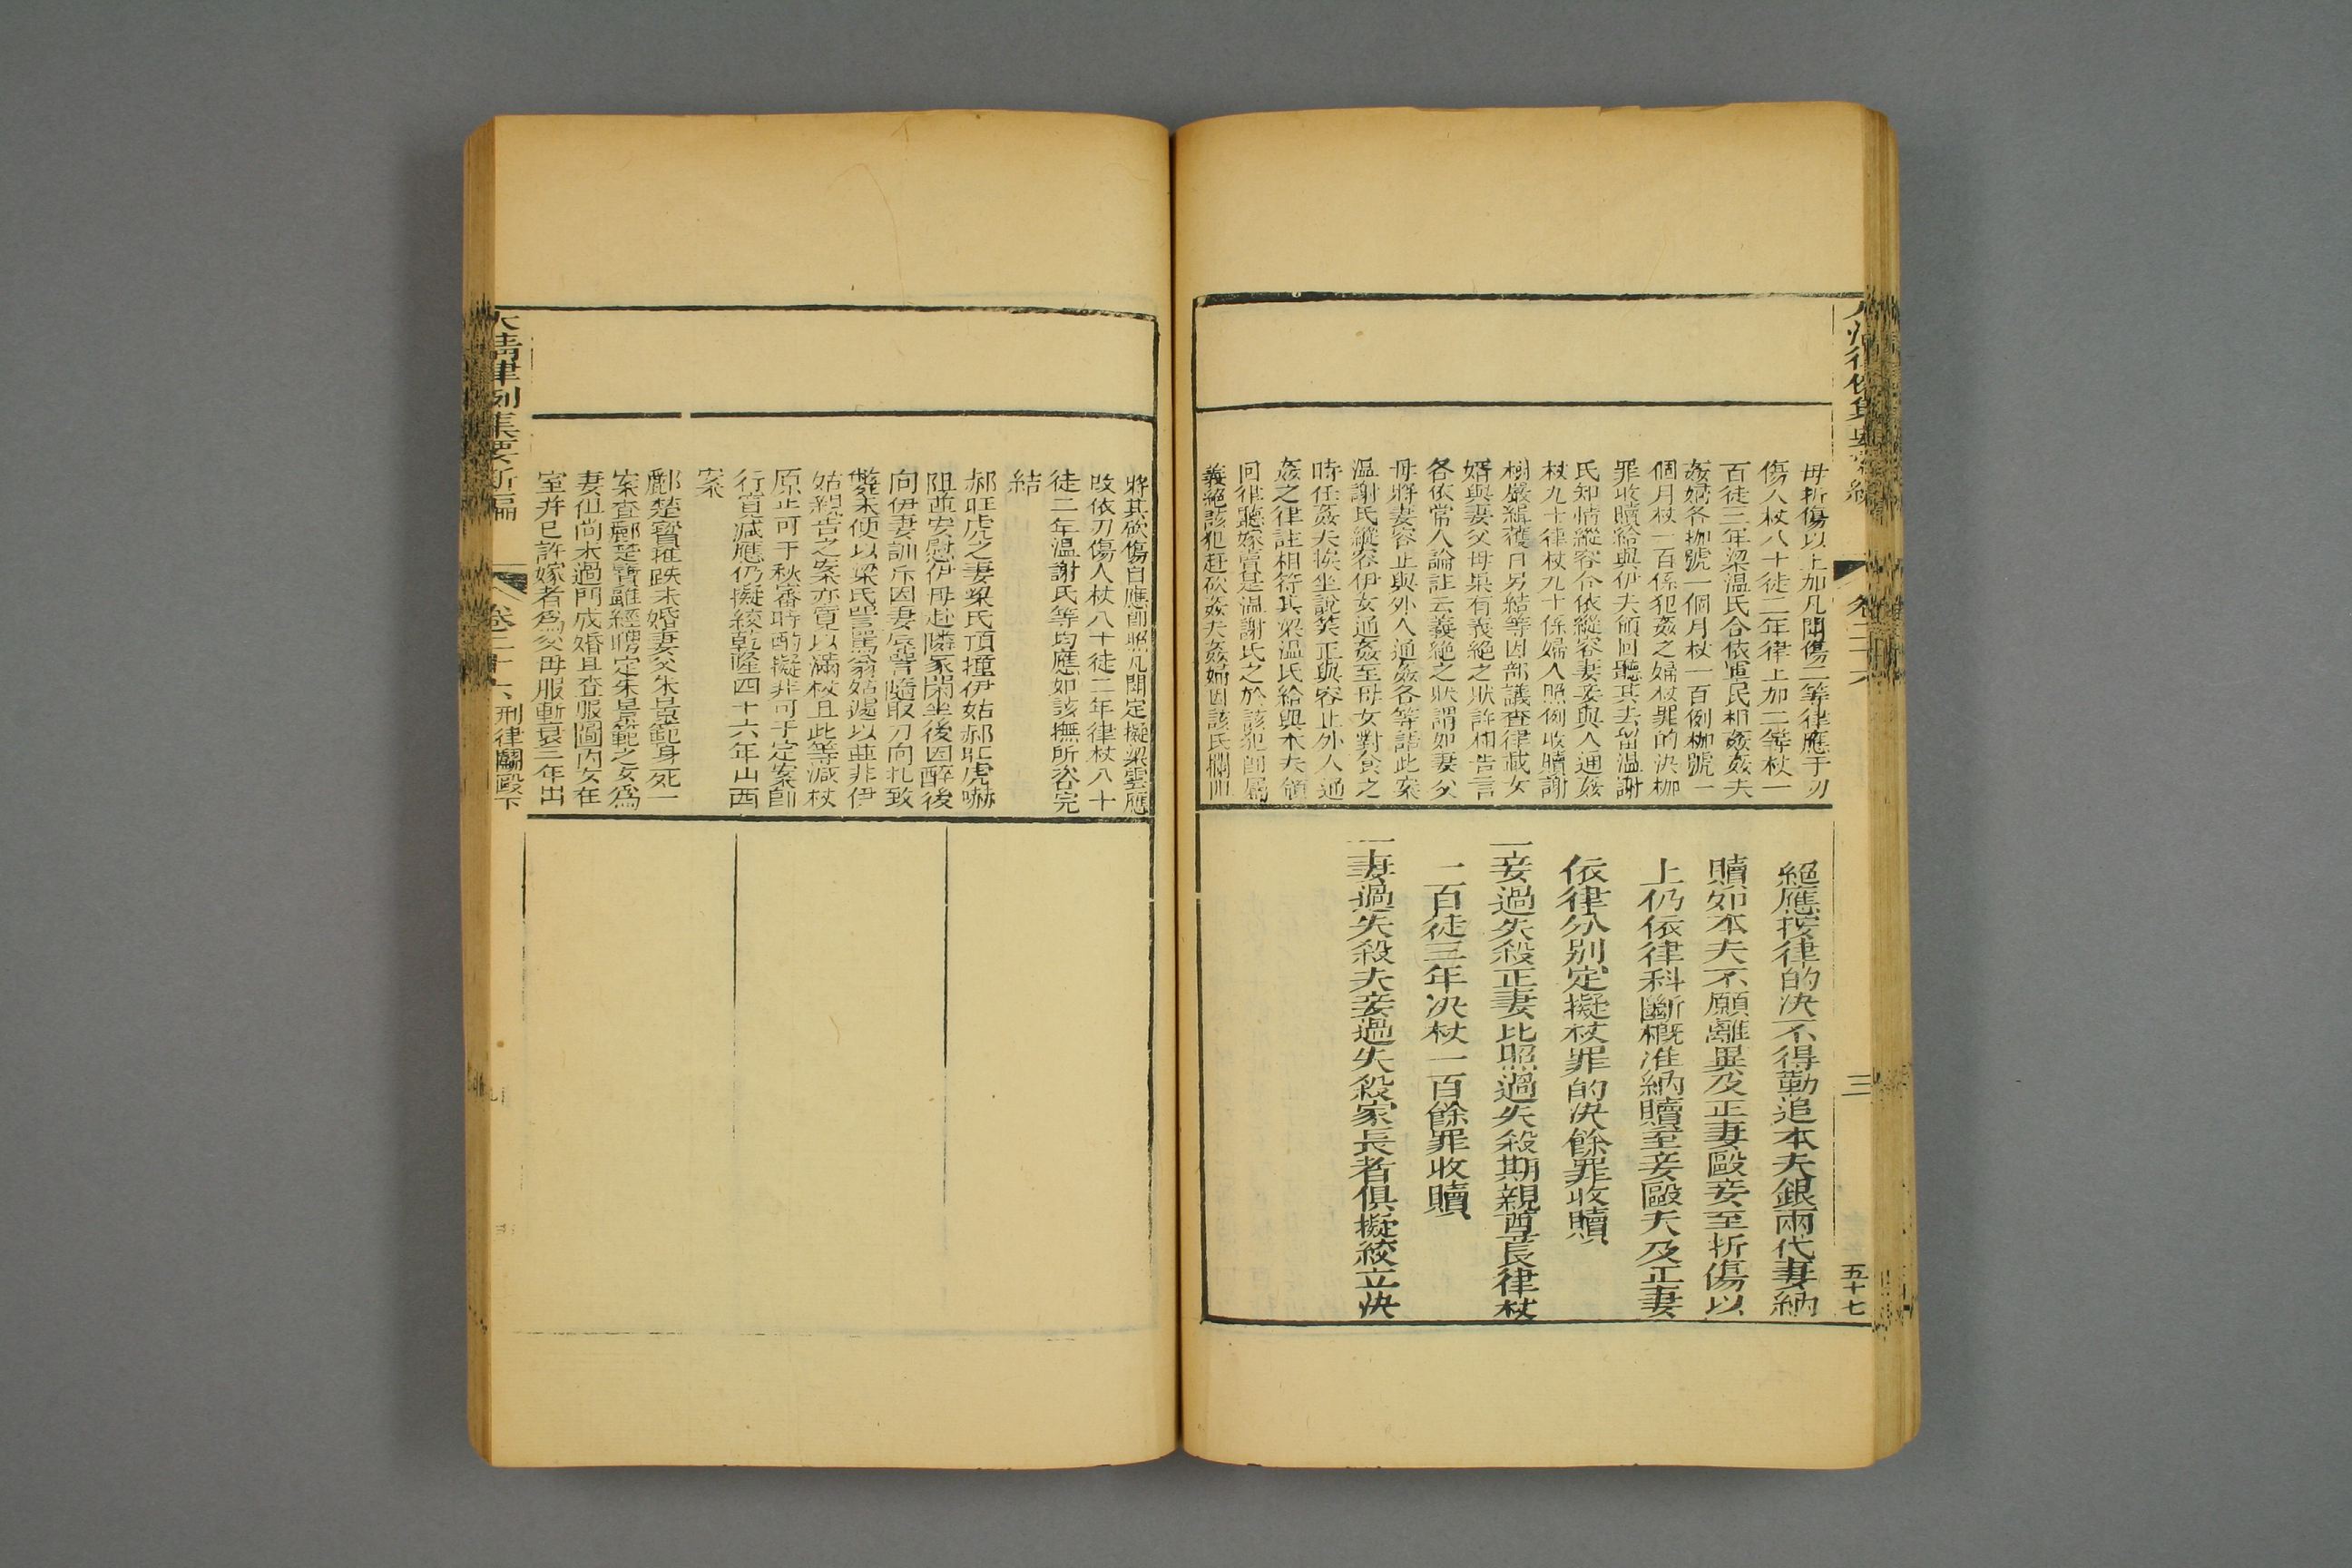 母折傷以上加凡鬬傷二等律應于刃
傷人杖八十徒二年律上加二等杖一
百徒三年梁溫氏合依軍民相姦姦夫
姦婦各枷號一個月杖一百例枷號一
個月杖一百係犯姦之婦杖罪的決枷
罪收贖給與伊夫領回聽其去留溫謝
氏知情縱容合依縱容妻妾與人通姦
杖九十律杖九十係婦人照例收贖謝
樹嚴緝獲日另結等因部議查律載女
婿與妻父母果有義絕之狀許相告言
各依常人論註云義絕之狀謂如妻父
母將妻容止與外人通姦各等語此案
溫謝氏縱容伊女通姦至母女對食之
時任姦夫挨坐說笑正與容止外人通
姦之律註相符其梁溫氏給與本夫領
回律聽嫁賣是溫謝氏之於該犯即屬
義絕該犯赶砍姦夫姦婦因該氏攔阻
絕應按律的決不得勒追本夫銀兩代妻納
贖如本夫不願離異及正妻毆妾至折傷以
上仍依律科斷概准納贖至妾毆夫及正妻
依律分別定擬杖罪的決餘罪收贖
一妾過失殺正妻比照過失殺期親尊長律杖
一百徒三年决杖一百餘罪收贖
一妻過失殺夫妾過失殺家長者俱擬絞立決
三
五十七
將其砍傷自應即照凡鬬定擬梁雲應
改依刀傷人杖八十徒二年律杖八十
徒二年溫謝氏等均應如該撫所咨完
結
郝旺虎之妻梁氏頂撞伊姑郝旺虎嚇
阻並安慰伊母赴隣家閑坐後因醉後
向伊妻訓斥因妻唇譽隨取刀向扎致
斃未便以梁氏詈罵翁姑遏以並非伊
姑親告之案亦寬以滿杖且此等減杖
原止可于秋審時酌擬非可于定案即
行寬減應仍擬絞乾隆四十六年山西
案
鄺楚寶推跌未婚妻父朱景範身死一
案查鄺楚寶雖經聘定朱景範之女為
妻但尚未過門成婚且查服圖內女在
室并已許嫁者為父母服斬衰三年出
大清律例集要新編
卷二十六
刑律鬬毆下